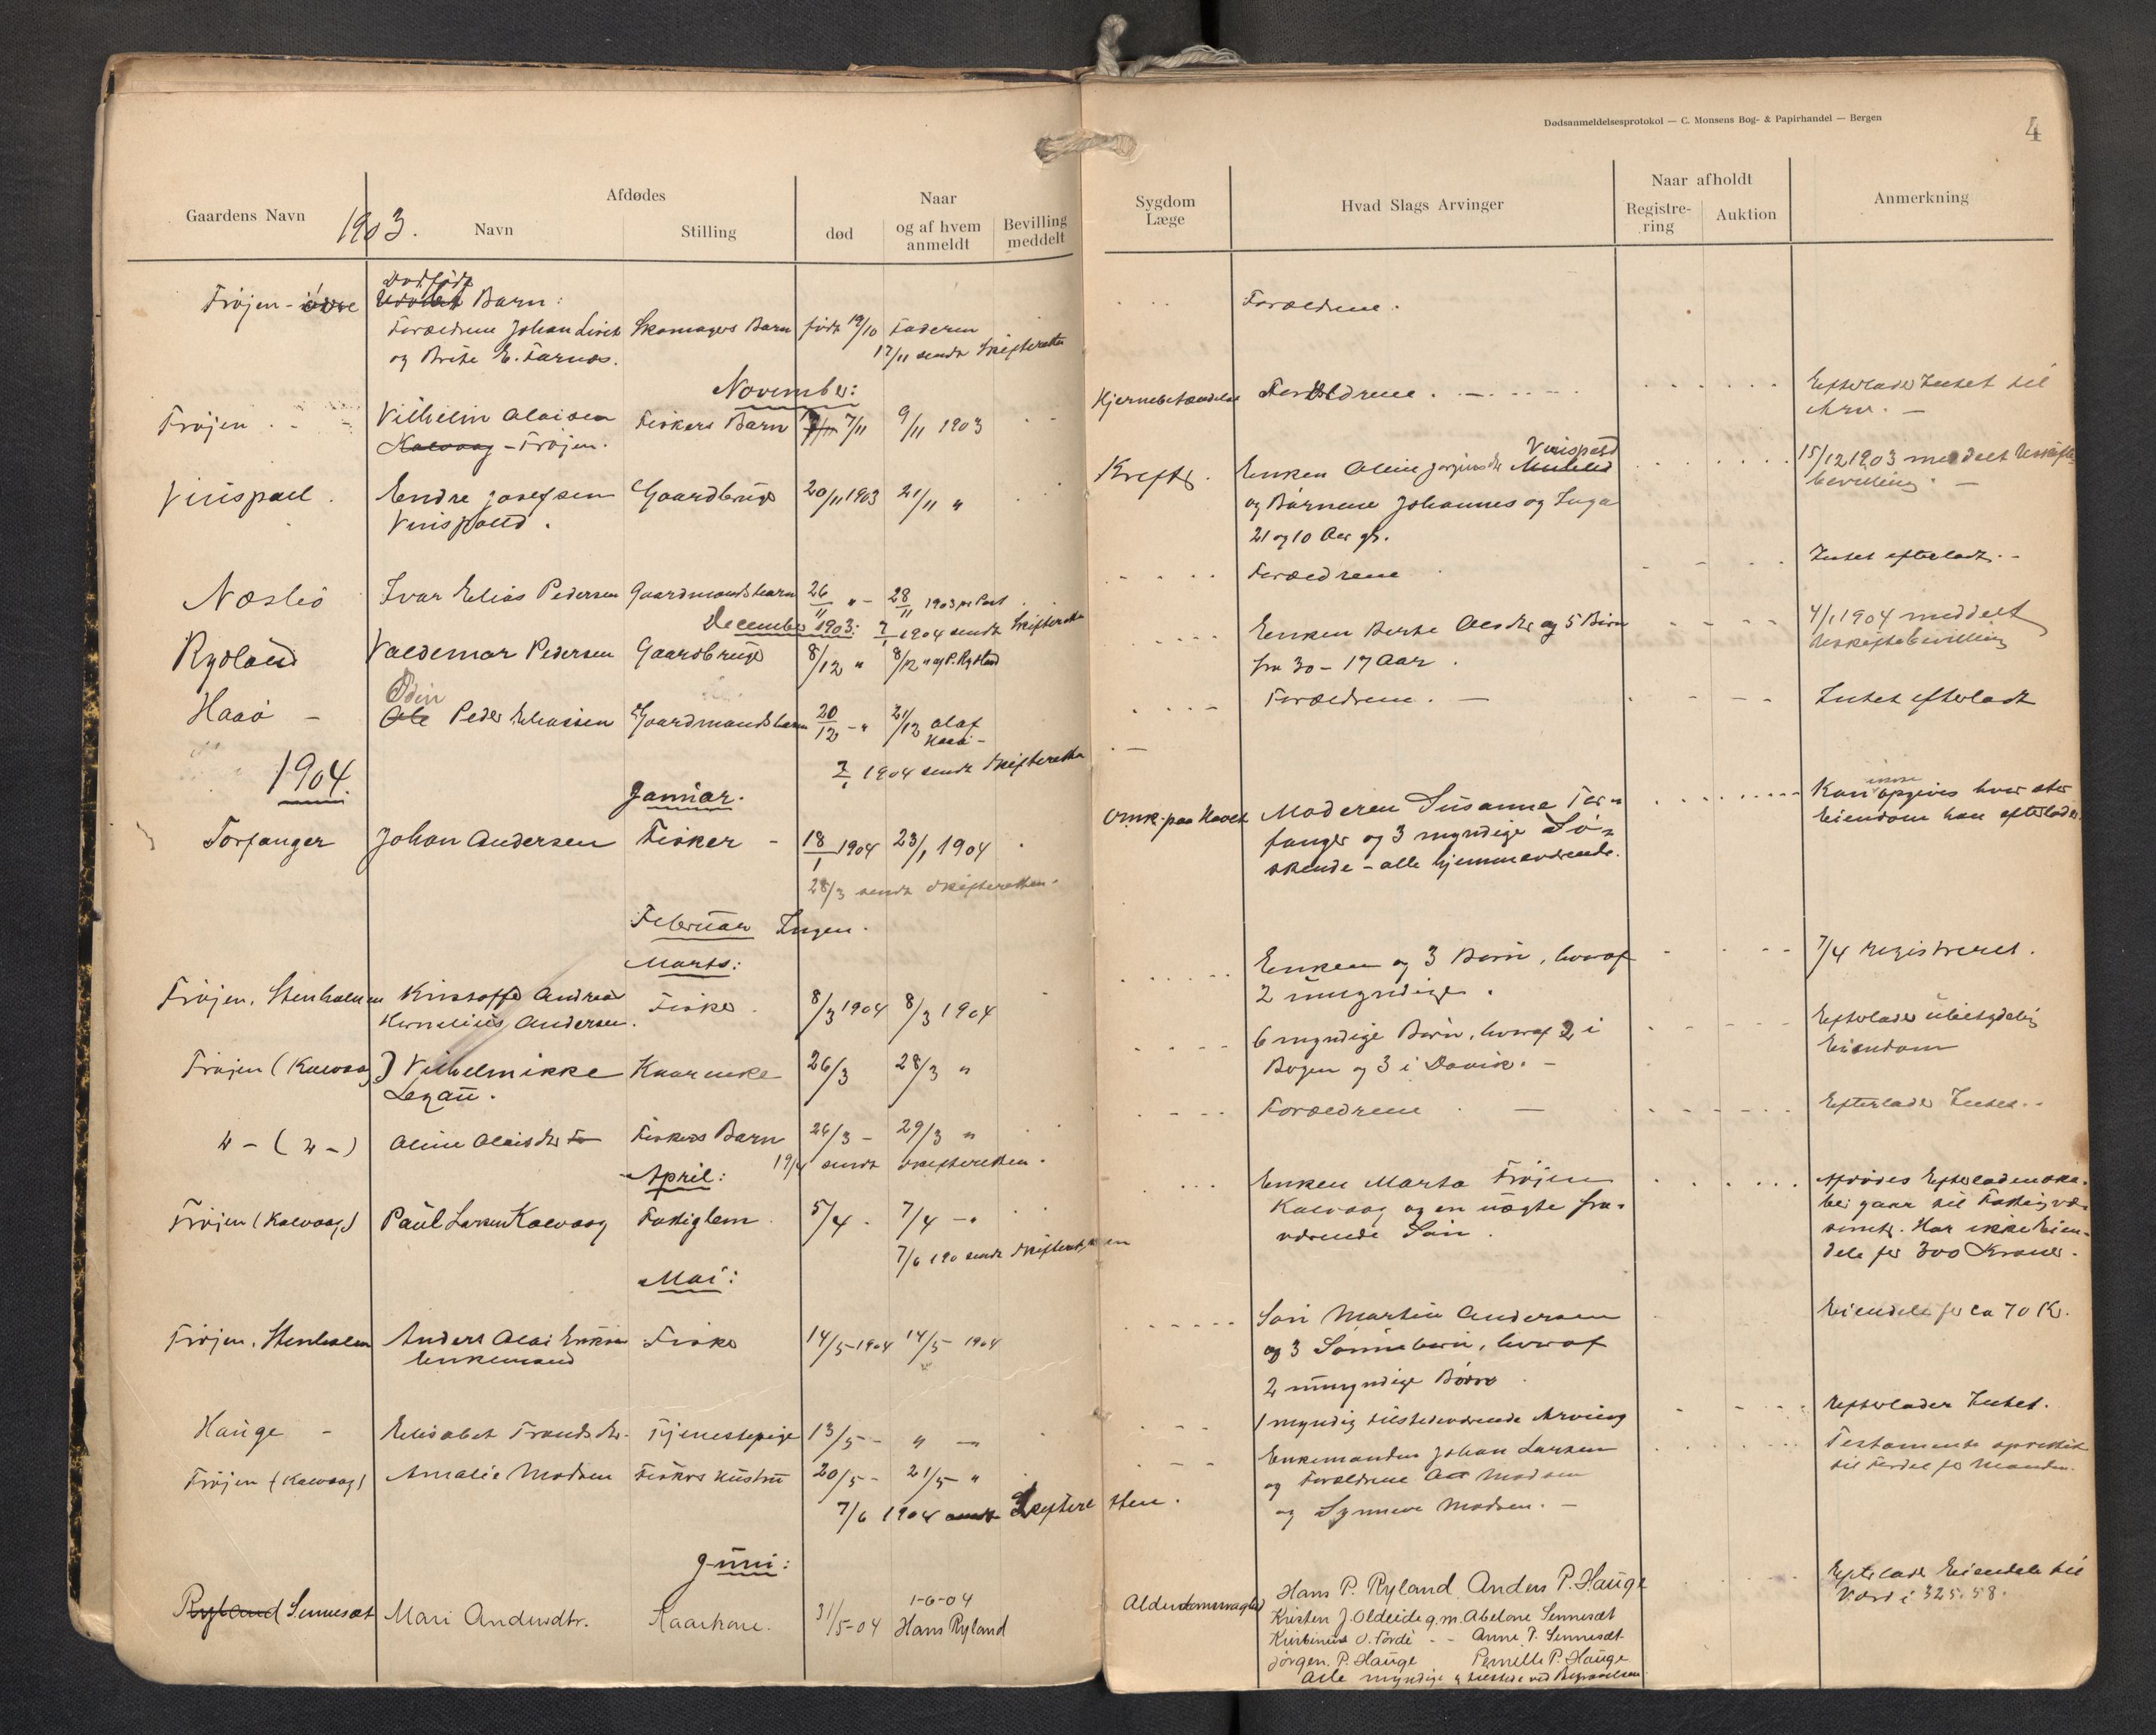 Dødsanmeldelsesprotokol — C. Monsens Bog- & Papirhandel — Bergen
4
Gaardens Navn
1903.
Afdødes
Navn
Stilling
Naar
død
og af hvem anmeldt
Bevilling meddelt
Sygdom
Læge
Hvad Slags Arvinger
Naar afholdt
Registre-
ring
Auktion
Anmerkning
Frøjen - Dødfødt Barn:
Forældrene Johan Skomagers Barn født 19/10 Faderen
og Brite E. 17/11 sendt Skifteretten
Forældrene.
November:
Frøjen Vilhelm Olaisen Fiskers Barn 7/11 9/11 1903
Kalvaag - Frøjen.
Hjernebetændelse Forældrene.
Efterlader Intet til
Arv. —
Endre Josefsen Gaardbruger 20/11 1903 21/11 "
Kræft. Enken Oline
og Børnene Johannes og Inga
21 og 10 Aar gl.
15/12 1903 meddelt Uskifte-
bevilling. —
Ivar Elias Pedersen Gaardmandsbarn 26/11 " - 28/11 1903 pr Post
Forældrene
Intet efterladt. -
December 1903: 7/1 1904 sendt Skifteretten
Rydland Valdemar Pedersen Gaardbruger 8/12 " 8/12 " af P. Rydland
Enken Berte Olesdtr og 5 Børn
fra 30 - 17 Aar.
4/1 1904 meddelt
Uskiftebevilling
Haaø - Odin
Ole Peder Eliassen Gaardmandsbarn 20/12 - " 21/12 Olaf
Haaø -
Forældrene. —
Intet efterladt
7/1 1904 sendt Skifteretten
1904.
Januar.
Torfanger Johan Andersen Fisker - 18/1 1904 23/1 1904
28/3 sendt Skifteretten.
Omk. paa Havet Moderen Susanne Tor-
fanger og 3 myndige Sø-
skende - alle hjemmeværende.
Kan ikke opgives hvor stor
Eiendom han efterlader.
Februar Ingen.
Marts:
Frøjen, Stenholmen Kristoffer Andreas Fisker 8/3 1904 8/3 1904
Kornelius Andersen.
Enken og 3 Børn, hvoraf
2 umyndige.
7/4 registreret.
Frøjen (Kalvaag) Vilhelmikke Kaarenke 26/3 28/3 "
6 myndige Børn, hvoraf 2 i
Bergen og 3 i Davik. -
Efterlader ubetydelig
Eiendom
" - ( " - ) Oline Olaisdtr Fiskers Barn 26/3 - 29/3 "
19/4 sendt Skifteretten.
Forældrene —
Efterlader Intet. -
April:
Frøjen (Kalvaag) Paul Larsen Kalvaag Fattiglem 5/4 - 7/4 - "
7/6 190 sendt Skifteretten
Enken Marta Frøjen
Kalvaag og en uægte fra-
værende Søn.
Afdødes Efterladenska-
ber gaar til Fattigvæ-
senet. Har ikke Eien-
dele for 300 Kroner.
Mai:
Frøjen, Stenholmen Anders Olai Eriksen Fisker 14/5 - 1904 14/5 - 1904
Enkemand
Søn Martin Andersen
og 3 Sønnebørn, hvoraf
2 umyndige Børn.
Eiendele for ca 70 Kr.
Hauge - Elisabet Trondsdtr. Tjenestepige 13/5 - " —
1 myndig tilstedeværende Arving
Efterlader Intet.
Frøjen (Kalvaag) Amalie Madsen Fiskers Hustru 20/5 - 21/5 - "
7/6 1904 sendt Skifteretten.
Enkemanden Johan Larsen
og Forældrene Madsen
og Synneve Madsen. —
Testamente oprettet
til Fordel for Manden.
Juni:
Ryland Sennesæt Mari Andersdtr. Kaarkone. 31/5-04 1-6-04
Hans Ryland
Alderdomssvaghed Hans P. Ryland Anders P. Hauge
Kristen J. Oldeide g. m. Abelone Sennesæt
Førde - - Anne P. Sennesæt
Jørgen P. Hauge Pernille P. Hauge
Alle myndige & tilstede ved Begravelsen
Efterlader Eiendele til
Værdi 325.58.